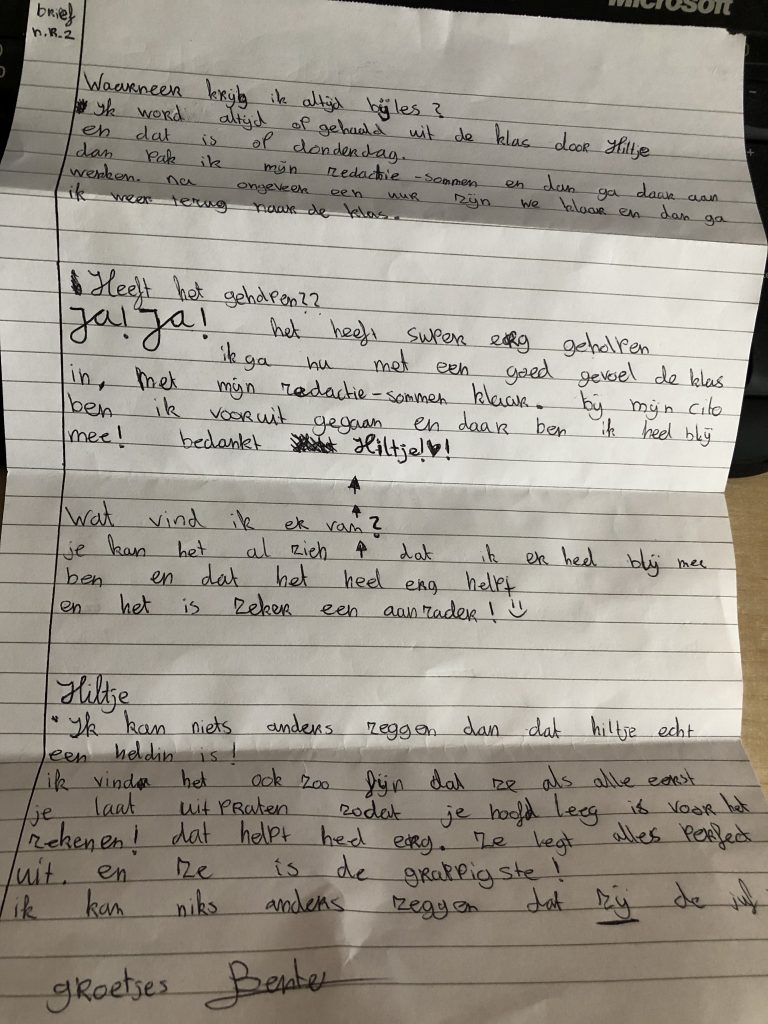 Microsoft
brief
n.R.2
Waarneer krijg ik altijd bijles?
Ik word altijd of gehaald uit de klas door Hiltje
en dat is of donderdag.
dan pak ik mijn redactie-sommen en dan ga daar aan
werken. na ongeveer een uur zijn we klaar en dan ga
ik weer terug naar de klas.
Heeft het geholpen??
Ja! Ja! het heeft super erg geholpen
ik ga nu met een goed gevoel de klas
in, met mijn redactie-sommen klaar. bij mijn cito
ben ik vooruit gegaan en daar ben ik heel blij
mee! bedankt Hiltje!♥!
Wat vind ik er van?
je kan het al zien ↑ dat ik er heel blij mee
ben en dat het heel erg helpt
en het is zeker een aanrader!
Hiltje
Ik kan niets anders zeggen dan dat hiltje echt
een heldin is!
ik vind het ook zoo fijn dat ze als alle eerst
je laat uitpraten zodat je hoofd leeg is voor het
rekenen! dat helpt heel erg. ze legt alles perfect
uit. en ze is de grappigste!
ik kan niks anders zeggen dat zij de juf
groetjes Bente